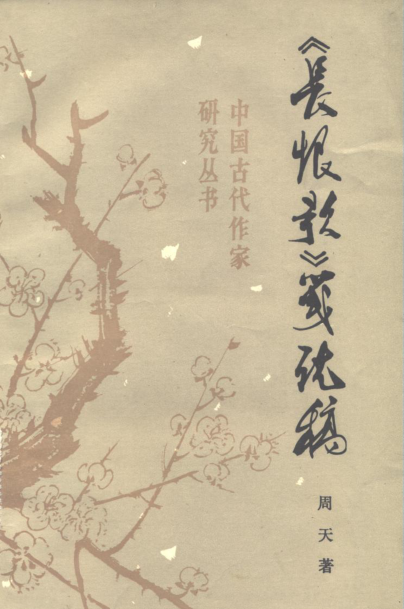 《長恨歌》箋说稿
中国古代作家
研究丛书
周天著